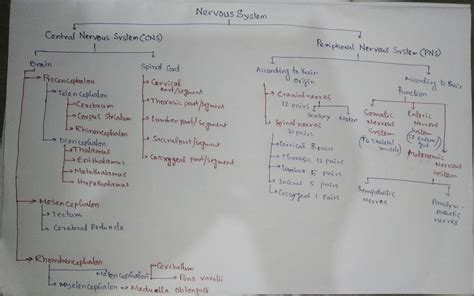 Nervous System
Central Nervous System (CNS)
Peripheral Nervous System (PNS)
Brain
Spinal Cord
According to their
Origin
According to their
Function
Prosencephalon
Telencephalon
Cerebrum
Corpus Striatum
Rhinencephalon
Diencephalon
Thalamus
Epithalamus
Metathalamus
Hypothalamus
Mesencephalon
Tectum
Cerebral Peduncle
Rhombencephalon
Metencephalon
Cerebellum
Pons varolii
Myelencephalon
Medulla oblongata
Cervical
part/segment
Thorasic part/segment
Lumbar part/segment
Sacral part/segment
Coccygeal part/segment
Cranial nerves
12 pairs
Spinal nerves
31 pair
Cervical 8 pair
Thorasic 12 pairs
Lumbar 5 pair
Sacral 5 pairs
Coccygeal 1 pairs
Sensory
Motor
Somatic
Nervous
System
(To skeletal
muscle)
Enteric
Nervous
System
Autonomic
Nervous
System
Sympathetic
Nerves
Parasym-
pathetic
nerves